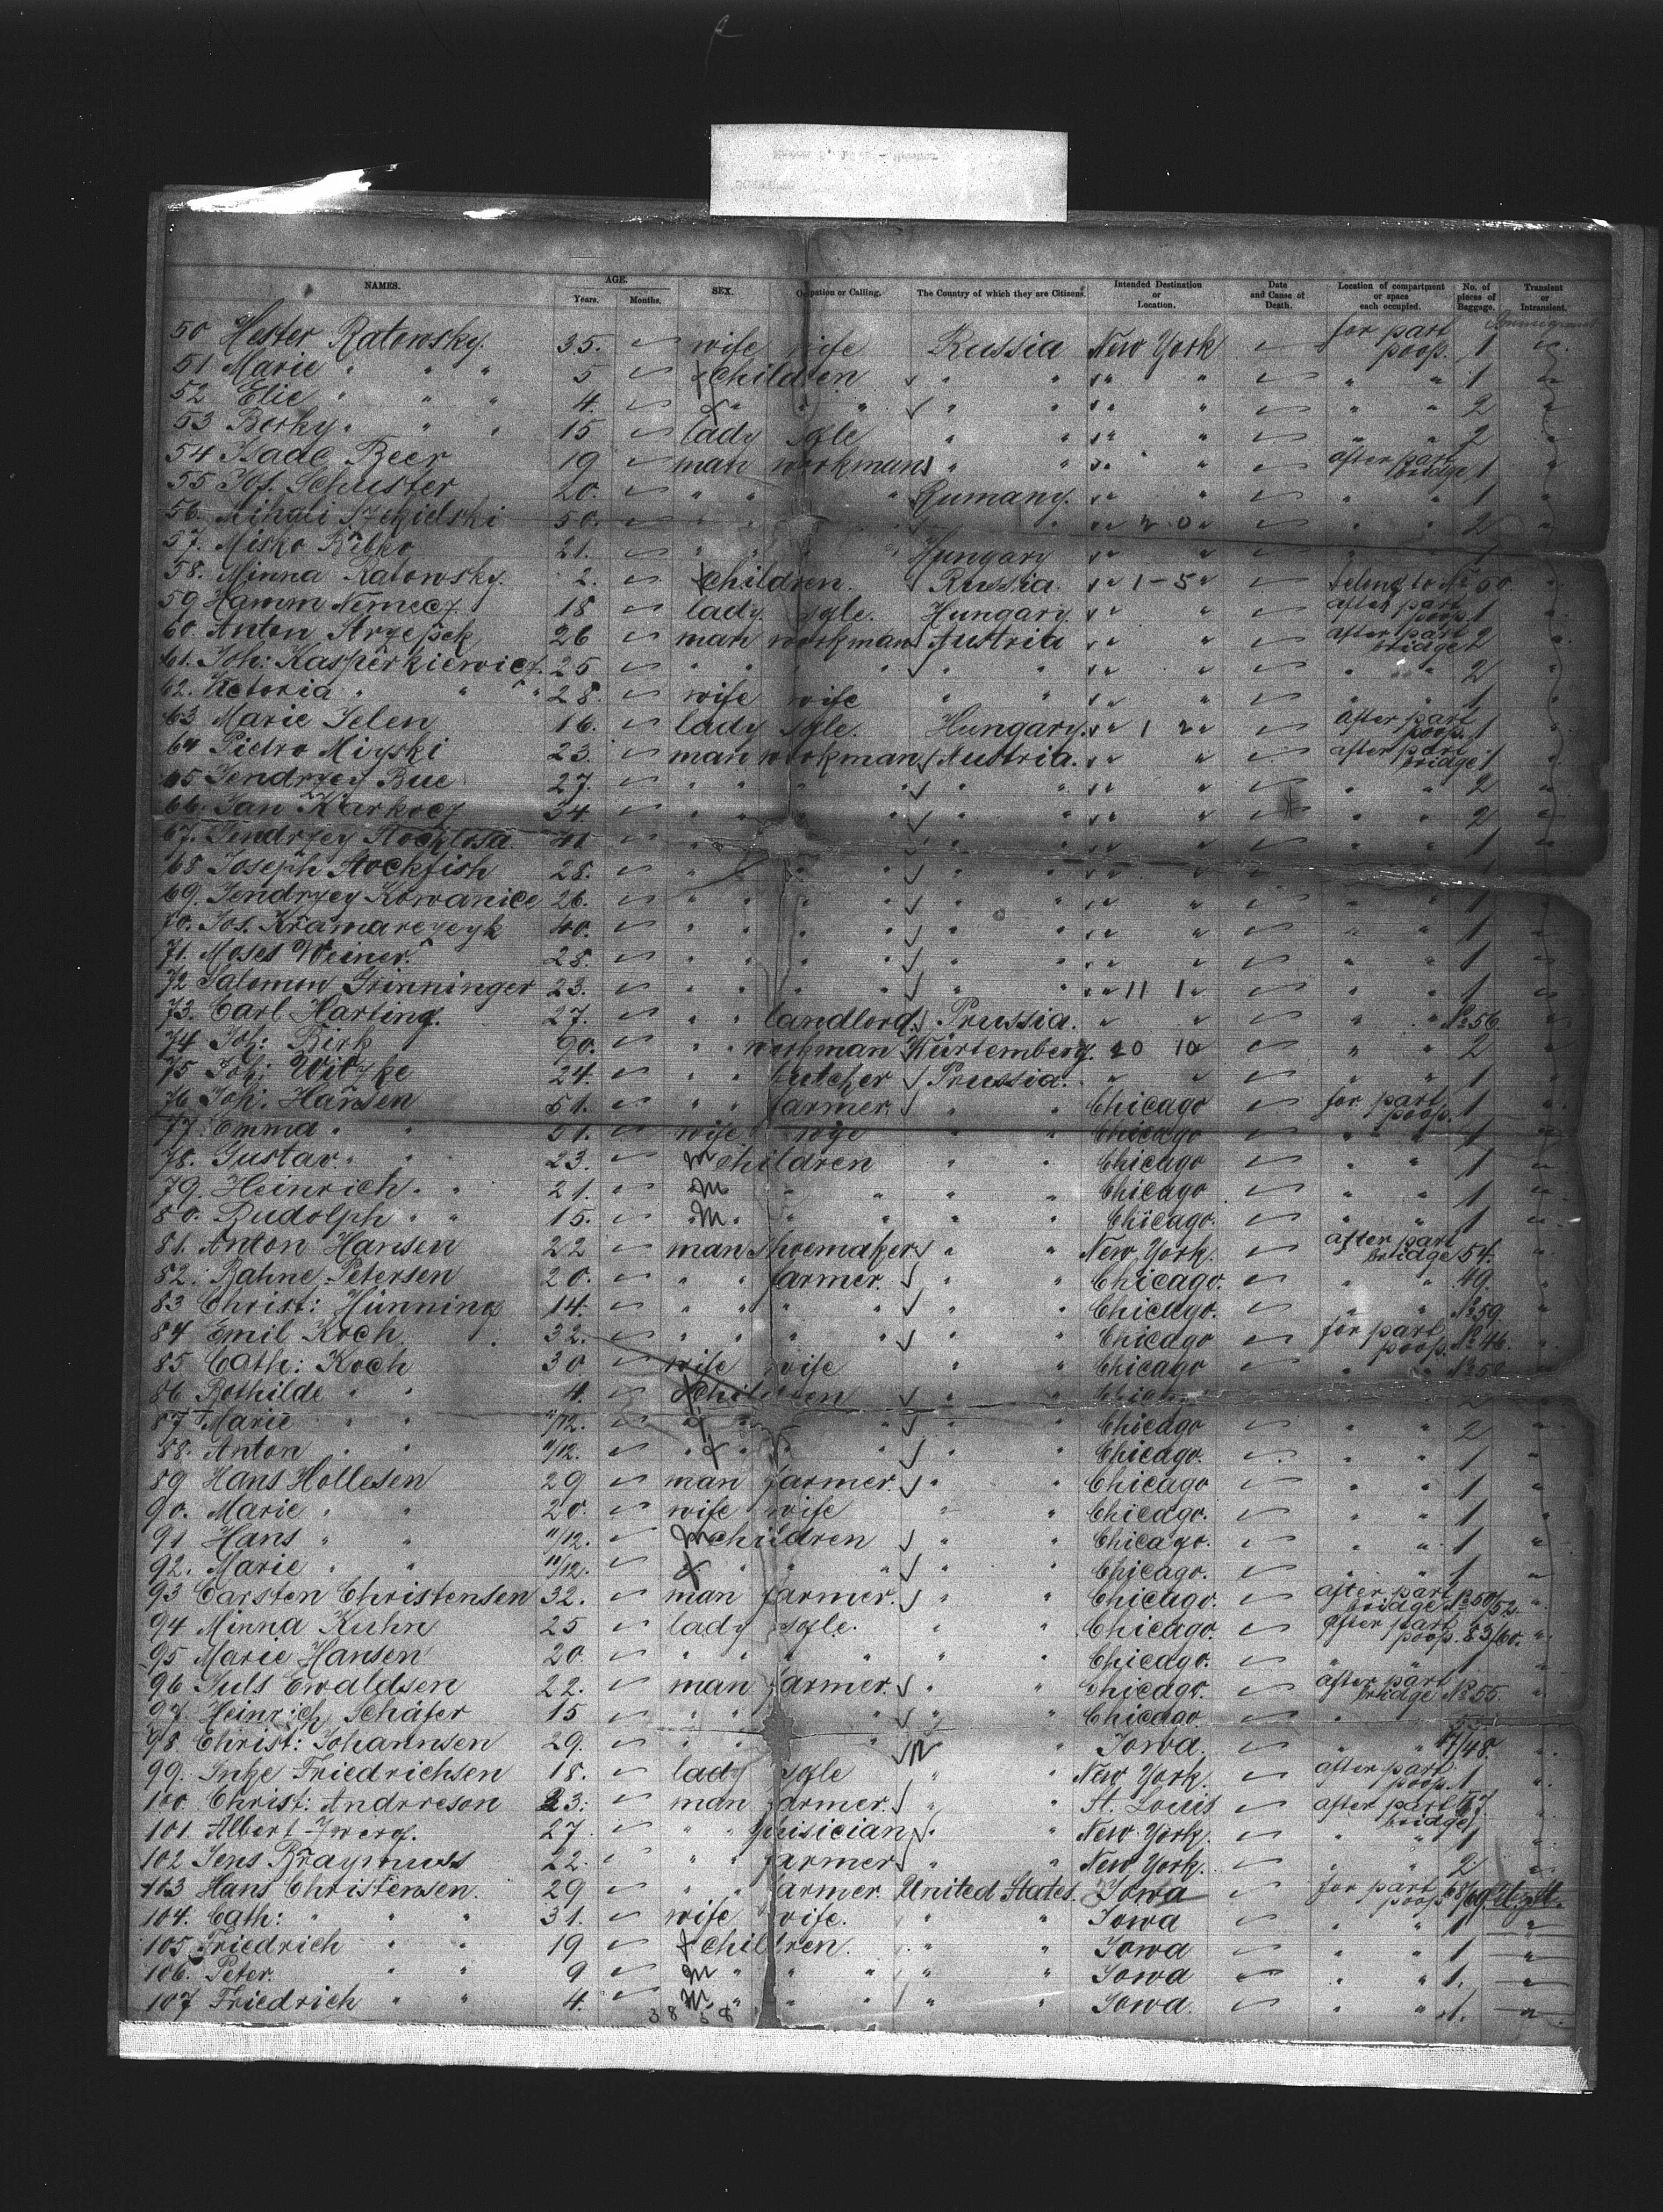 NAMES. AGE. Years. Months. SEX. Occupation or Calling. The Country of which they are Citizens. Intended Destination or Location. Date and Cause of Death. Location of compartment or space each occupied. No. of pieces of Baggage. Transient or Intransient.
50 Hester Ratowsky. 35. wife wife Russia New York for part poop. 1
51 Marie " " " 5 children " " " " " " 1 "
52 Elie " " " 4. " " " " " " " " " 2 "
53 Berky " " " 15 lady sgle " " " " " " 2 "
54 Isaac Beer 19 man workman " " " " after part bridge 1 "
55 Jos. Schuster 20. " " " Rumany. " " " " 1 "
56. Mihali 50. " " 2 0 " " " 2 "
57. Misko Ribko 21. " " " Hungary " " " " 1 "
58. Minna Ratowsky. 2. children. Russia. " 1-5 " belong to No 50. "
59 Hamm Nemecz 18 lady. sgle. Hungary. " " after part poop 1 "
60. Anton 26 man workman Austria " " after part bridge 2 "
61. Joh: Kasperkiewicz. 25 " " " " " " " " " " 2 "
62. Victoria " " " 28. wife wife " " " " " " 1 "
63 Marie Jelen 16. lady sgle. Hungary. " 1 2 " after part poop. 1 "
64 Pietro Miyski 23. man workman Austria. " " after part bridge 1 "
65 Jendrzey Buc 27. " " " " " " " " " " 2 "
66. Jan Karkocz 34 " " " " " " " " " " 2 "
67. Jendrzey Stocklosa 41 " " " " " " " " " " 1 "
68 Joseph Stockfish 28. " " " " " " " "
69. Jendrzey Kowanice 26. " " " " " " " " " " 1 "
70. Jos. Kramarczyk 40. " " " " " " " " " " 1 "
71. Moses Weiner. 28. " " " " " " " " " " 1 "
72 Salomon Grinninger 23. " " " " " " " 11 1 " " " 1 "
73. Carl Harting. 27. " " landlord. Prussia. " " " " No 56. "
74 Joh: Birk 90. " " workman Würtemberg. 20 10 " " 2 "
75 Joh: Witzke 24. " " butcher Prussia. " " " " 1 "
76 Joh: Hansen 51. " " farmer. " " Chicago for part poop. 1 "
77. Emma " " 51. wife wife " " Chicago " " 1 "
78. Gustav. " " 23. m children " " Chicago " " 1 "
79. Heinrich " " 21. m " " " " Chicago " " 1 "
80. Rudolph " " 15. m " " " " Chicago. " " 1 "
81. Anton Hansen 22 man Shoemaker " " New York. after part bridge 54. "
82. Rahne Petersen 20. " " farmer. " " Chicago. " " 49. "
83 Christ: Hünning 14. " " " " " " Chicago. " " No 59. "
84 Emil Koch. 32. " " " " " " Chicago for part poop. No 46. "
85 Cath: Koch 30 wife wife " " Chicago " " No 58 "
86 Bothilde " " 4. children " " " " 2 "
87 Marie " " " " Chicago " " 2 "
88. Anton " " 11/12. " " " " Chicago. " " 1 "
89 Hans Hollesen 29 man farmer. " " Chicago " " 1 "
90. Marie " " 20. wife wife " " Chicago. " " 1 "
91 Hans " " 11/12. m children " " Chicago. " " 1 "
92. Marie " " 11/12. " " " " Chicago. " " 1 "
93 Carsten Christensen 32. man farmer. " " Chicago. after part bridge No 50/52. "
94 Minna Kuhn 25 lady sgle. " " Chicago. after part poop. 83/60. "
95 Marie Hansen 20. " " " " " " Chicago. " " 1 "
96 Juls Ewaldsen 22. man farmer. " " Chicago. after part bridge No 55. "
97. Heinrich Schäfer 15 " " " " " Chicago. "
98 Christ: Johannsen 29. " " " " " Iowa. " " 47/48. "
99. Inke Friedrichsen 18. lady sgle " " New York. after part poop. 1 "
100. Christ: Andresson 23. man farmer. " " St. Louis after part bridge 57. "
101 Albert Zwerg. 27. " " phisician " " New York. " " 1 "
102 Jens 22. " " farmer " " New York. " " 2 "
113 Hans Christensen. 29 " " farmer. United States. Iowa for part poop 68/69
104. Cath: " " " 31. wife wife. " " Iowa " " 1 "
105 Friedrich " " 19 children. " " Iowa " " 1 "
106. Peter. " " 9 m " " " " " Iowa " " 1. "
107 Friedrich " " 4. m " " " " " Iowa. " " 1. "
38 58